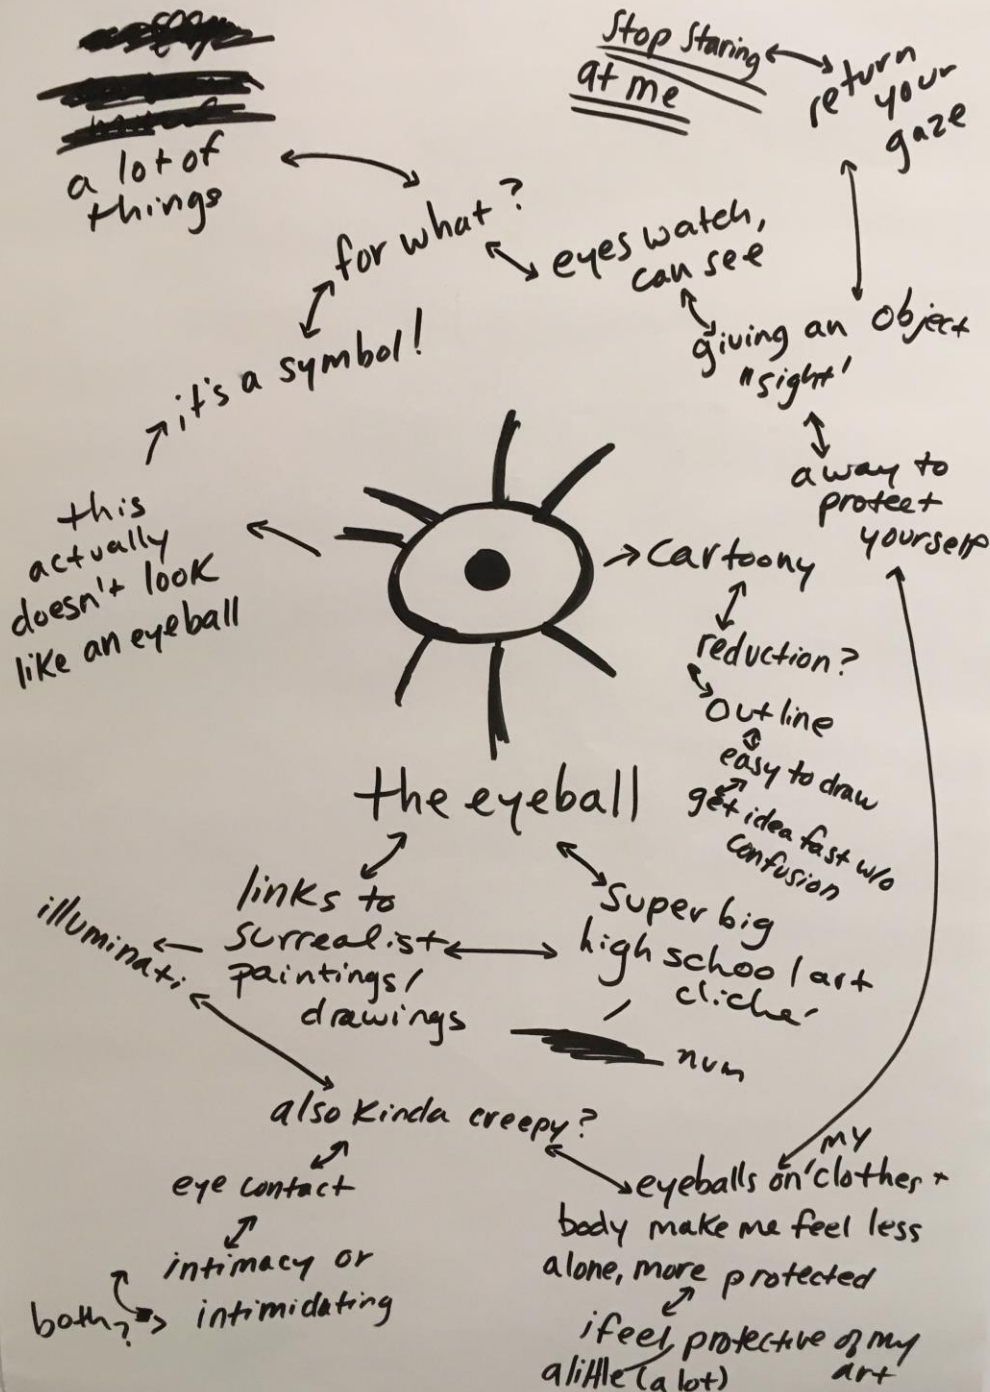 a lot of
things
Stop Staring
at me
return
your
gaze
for what?
eyes watch,
can see
it's a symbol!
giving an object
"sight'
a way to
protect
yourself
this
actually
doesn't look
like an eyeball
cartoony
reduction?
outline
easy to draw
get idea fast w/o
confusion
the eyeball
links to
surrealist
paintings/
drawings
illuminati
super big
high school art
cliche'
num
also kinda creepy?
eye contact
intimacy or
intimidating
both?
my
eyeballs on clothes +
body make me feel less
alone, more protected
i feel protective of my
art
a little (a lot)